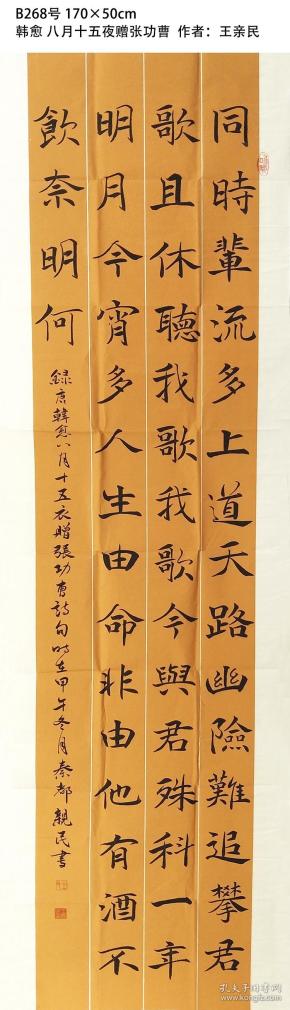 B268号 170×50cm
韩愈 八月十五夜赠张功曹 作者：王亲民
同時輩流多上道天路幽險難追攀君
歌且休聽我歌我歌今與君殊科一年
明月今宵多人生由命非由他有酒不
飲奈明何
録唐韓愈八月十五衣贈張功曹詩句時在甲午冬月秦都親民書
孔夫子旧书网